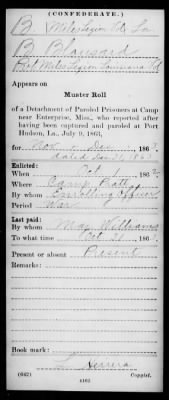 (CONFEDERATE.)
B. Miles Legion Vols La.
B. Blansard
Pvt. Miles Legion Louisiana Vols
Appears on
Muster Roll
of a Detachment of Paroled Prisoners at Camp
near Enterprise, Miss., who reported after
having been captured and paroled at Port
Hudson, La., July 9, 1863,
for Nov & Dec, 186 3.
dated Dec 31, 1863
Enlisted:
When Oct 1, 186
Where Camp Pratt
By whom Enrolling Officer
Period War
Last paid:
By whom Maj Williams
To what time Oct 31, 186
Present or absent Present
Remarks:
Book mark:
Herrera
(642) 4102 Copyist.